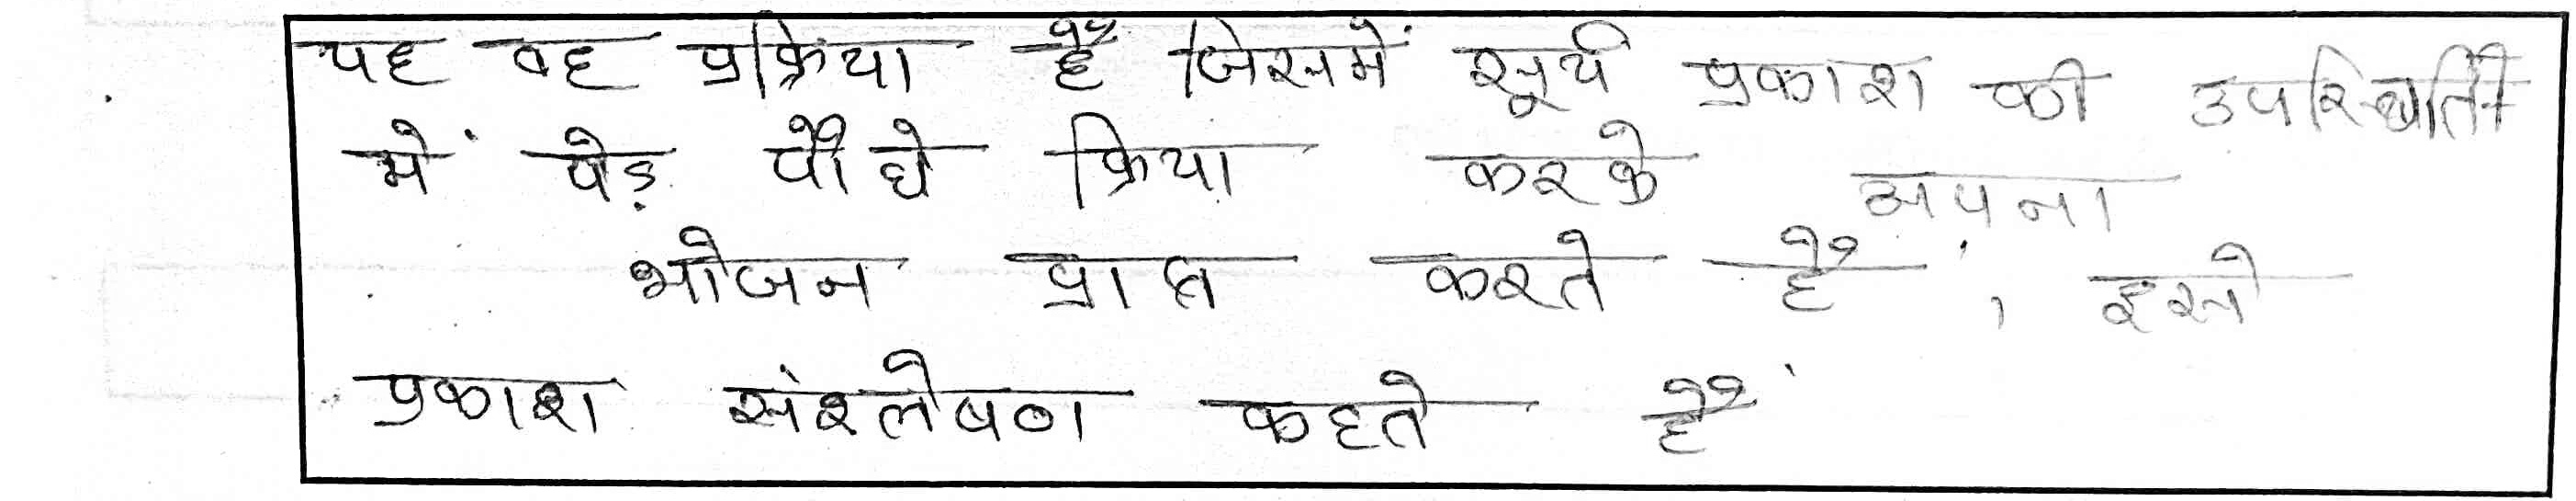 यह वह प्रक्रिया है जिसमें सूर्य प्रकाश की उपस्थिती
में पेड़ पौधे क्रिया करके अपना
भोजन प्राप्त करते हैं, इसे
प्रकाश संश्लेषण कहते हैं